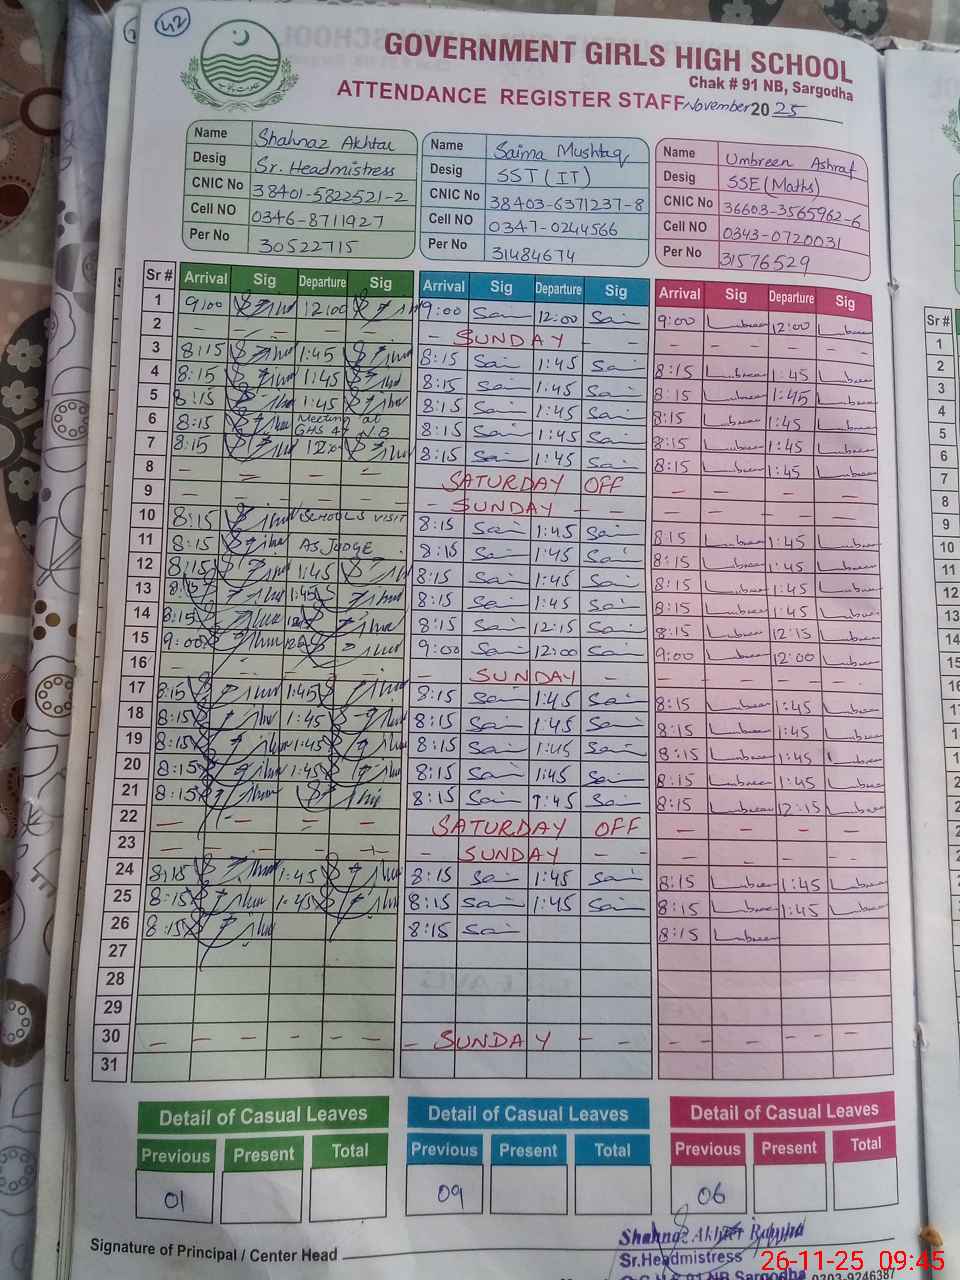 42
GOVERNMENT GIRLS HIGH SCHOOL
Chak # 91 NB, Sargodha
ATTENDANCE REGISTER STAFF November 2025
Name Shahnaz Akhtar Name Saima Mushtaq Name Umbreen Ashraf
Desig Sr. Headmistress Desig SST (IT) Desig SSE (Maths)
CNIC No 38401-5822521-2 CNIC No 38403-6371237-8 CNIC No 36603-3565962-6
Cell NO 0346-8711927 Cell NO 0347-0244566 Cell NO 0343-0720031
Per No 30522715 Per No 31484674 Per No 31576529
Sr # Arrival Sig Departure Sig Arrival Sig Departure Sig Arrival Sig Departure Sig Sr #
1 9:00 12:00 9:00 Sai 12:00 Sai 9:00 12:00
2 - - - - - SUNDAY - - - - - -
3 8:15 1:45 8:15 Sai 1:45 Sai 8:15 1:45
4 8:15 1:45 8:15 Sai 1:45 Sai 8:15 1:45
5 8:15 1:45 8:15 Sai 1:45 Sai 8:15 1:45
6 8:15 Meeting at GHS 47 N.B 8:15 Sai 1:45 Sai 8:15 1:45
7 8:15 12:00 8:15 Sai 1:45 Sai 8:15 1:45
8 - - - - SATURDAY OFF - - - -
9 - - - - - SUNDAY - - - - - -
10 8:15 SCHOOLS VISIT 8:15 Sai 1:45 Sai 8:15 1:45
11 8:15 AS JUDGE 8:15 Sai 1:45 Sai 8:15 1:45
12 8:15 1:45 8:15 Sai 1:45 Sai 8:15 1:45
13 8:15 1:45 8:15 Sai 1:45 Sai 8:15 1:45
14 8:15 8:15 Sai 12:15 Sai 8:15 12:15
15 9:00 9:00 Sai 12:00 Sai 9:00 12:00
16 - - - - - SUNDAY - - - - -
17 8:15 1:45 8:15 Sai 1:45 Sai 8:15 1:45
18 8:15 1:45 8:15 Sai 1:45 Sai 8:15 1:45
19 8:15 1:45 8:15 Sai 1:45 Sai 8:15 1:45
20 8:15 1:45 8:15 Sai 1:45 Sai 8:15 1:45
21 8:15 8:15 Sai 1:45 Sai 8:15 12:15
22 - - - - SATURDAY OFF - - - -
23 - - - - - SUNDAY - - - - - -
24 8:15 1:45 8:15 Sai 1:45 Sai 8:15 1:45
25 8:15 1:45 8:15 Sai 1:45 Sai 8:15 1:45
26 8:15 8:15 Sai 8:15
27
28
29
30 - - - - - SUNDAY - - - - - -
31
Detail of Casual Leaves Detail of Casual Leaves Detail of Casual Leaves
Previous Present Total Previous Present Total Previous Present Total
01 09 06
Signature of Principal / Center Head
Shahnaz Akhter
Sr.Headmistress
91 NB Sargodha
26-11-25 09:45